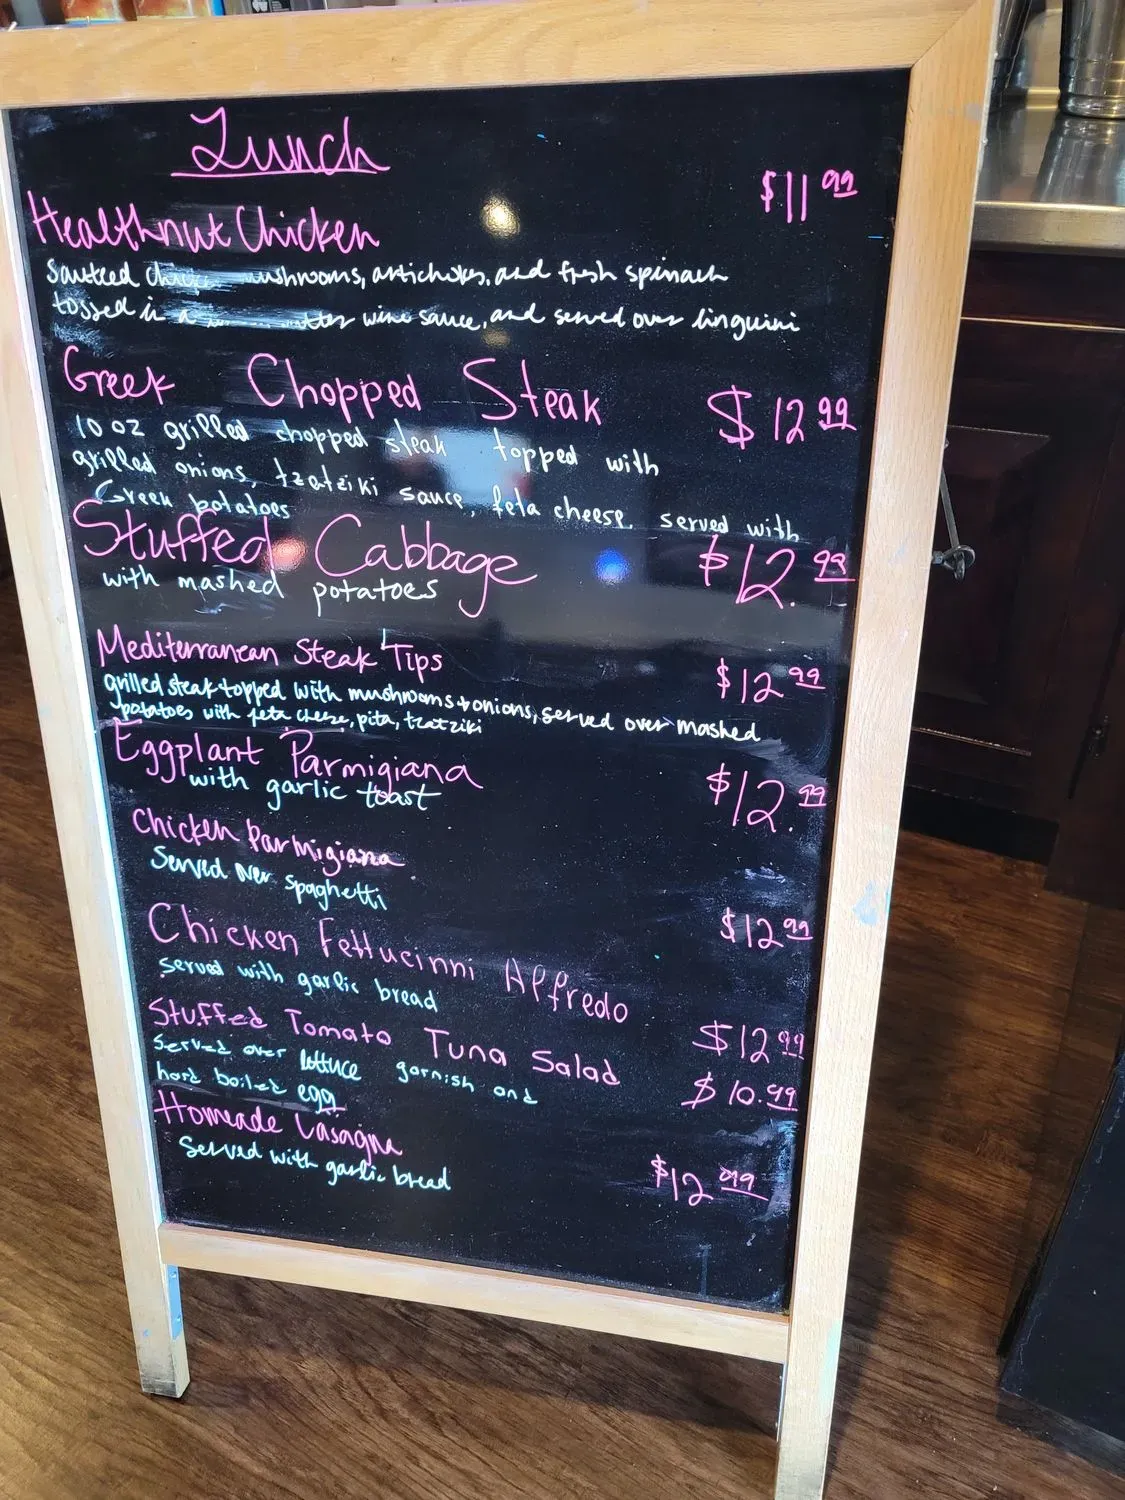 Lunch
Healthnut Chicken $11.99
Sautéed mushrooms, artichokes, and fresh spinach
tossed in a wine sauce, and served over linguini
Greek Chopped Steak $12.99
10 oz grilled chopped steak topped with
grilled onions, tzatziki sauce, feta cheese, served with
Greek potatoes
Stuffed Cabbage $12.99
with mashed potatoes
Mediterranean Steak Tips $12.99
grilled steak topped with mushrooms + onions, served over mashed
potatoes with feta cheese, pita, tzatziki
Eggplant Parmigiana $12.99
with garlic toast
Chicken Parmigiana
Served over spaghetti
$12.99
Chicken Fettucinni Alfredo
served with garlic bread
$12.99
Stuffed Tomato Tuna Salad $10.99
served over lettuce garnish and
hard boiled egg
Homeade Lasagna
Served with garlic bread
$12.99